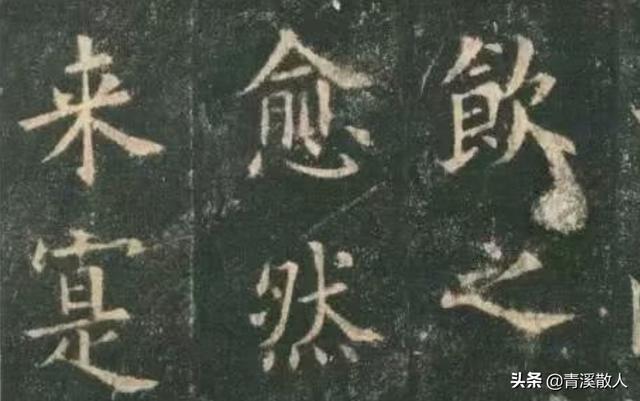 飲之
愈然
来寔
头条 @青溪散人